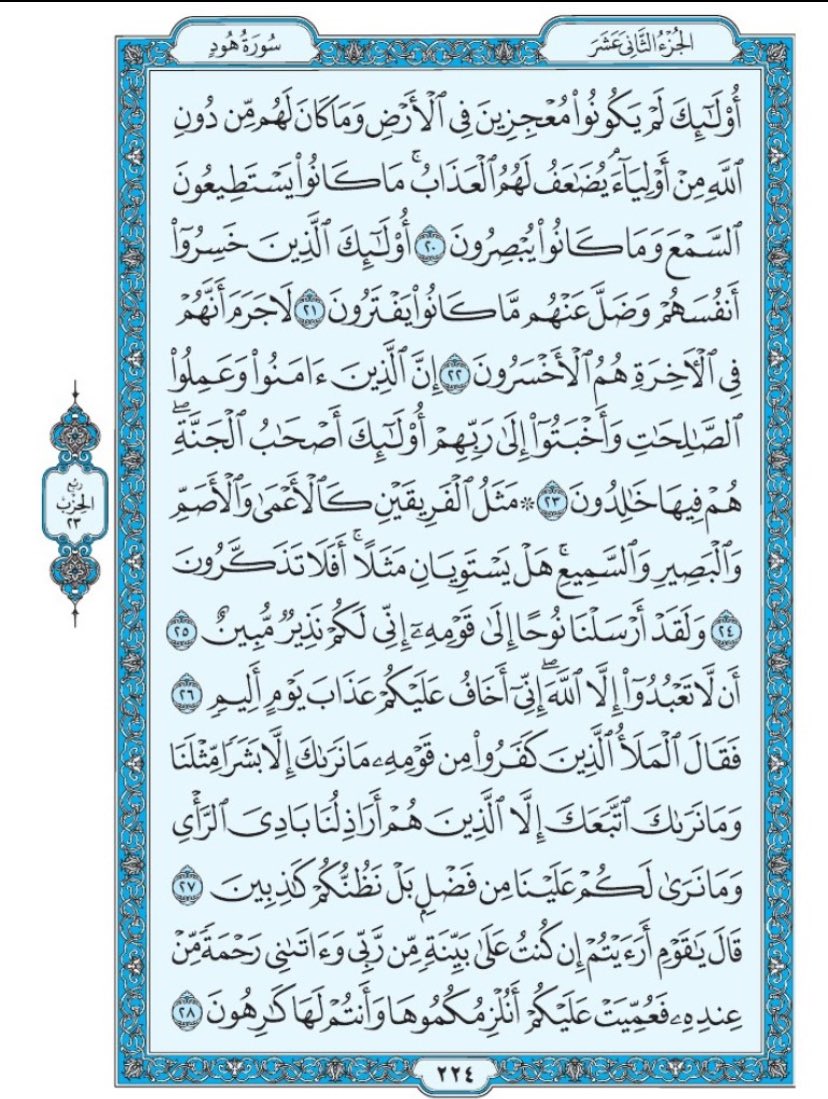 الجُزْءُ الثَّانِي عَشَرَ
سُورَةُ هُودٍ
أُوْلَٰٓئِكَ لَمْ يَكُونُواْ مُعْجِزِينَ فِي ٱلْأَرْضِ وَمَا كَانَ لَهُم مِّن دُونِ
ٱللَّهِ مِنْ أَوْلِيَآءَۘ يُضَٰعَفُ لَهُمُ ٱلْعَذَابُۚ مَا كَانُواْ يَسْتَطِيعُونَ
ٱلسَّمْعَ وَمَا كَانُواْ يُبْصِرُونَ ٢٠ أُوْلَٰٓئِكَ ٱلَّذِينَ خَسِرُوٓاْ
أَنفُسَهُمْ وَضَلَّ عَنْهُم مَّا كَانُواْ يَفْتَرُونَ ٢١ لَا جَرَمَ أَنَّهُمْ
فِي ٱلْأٓخِرَةِ هُمُ ٱلْأَخْسَرُونَ ٢٢ إِنَّ ٱلَّذِينَ ءَامَنُواْ وَعَمِلُواْ
ٱلصَّٰلِحَٰتِ وَأَخْبَتُوٓاْ إِلَىٰ رَبِّهِمْ أُوْلَٰٓئِكَ أَصْحَٰبُ ٱلْجَنَّةِۖ
هُمْ فِيهَا خَٰلِدُونَ ٢٣ ۞ مَثَلُ ٱلْفَرِيقَيْنِ كَٱلْأَعْمَىٰ وَٱلْأَصَمِّ
وَٱلْبَصِيرِ وَٱلسَّمِيعِۚ هَلْ يَسْتَوِيَانِ مَثَلًاۚ أَفَلَا تَذَكَّرُونَ
٢٤ وَلَقَدْ أَرْسَلْنَا نُوحًا إِلَىٰ قَوْمِهِۦٓ إِنِّي لَكُمْ نَذِيرٌ مُّبِينٌ ٢٥
أَن لَّا تَعْبُدُوٓاْ إِلَّا ٱللَّهَۖ إِنِّيٓ أَخَافُ عَلَيْكُمْ عَذَابَ يَوْمٍ أَلِيمٍ ٢٦
فَقَالَ ٱلْمَلَأُ ٱلَّذِينَ كَفَرُواْ مِن قَوْمِهِۦ مَا نَرَىٰكَ إِلَّا بَشَرًا مِّثْلَنَا
وَمَا نَرَىٰكَ ٱتَّبَعَكَ إِلَّا ٱلَّذِينَ هُمْ أَرَاذِلُنَا بَادِيَ ٱلرَّأْيِ
وَمَا نَرَىٰ لَكُمْ عَلَيْنَا مِن فَضْلٍۭ بَلْ نَظُنُّكُمْ كَٰذِبِينَ ٢٧
قَالَ يَٰقَوْمِ أَرَءَيْتُمْ إِن كُنتُ عَلَىٰ بَيِّنَةٍ مِّن رَّبِّي وَءَاتَىٰنِي رَحْمَةً مِّنْ
عِندِهِۦ فَعُمِّيَتْ عَلَيْكُمْ أَنُلْزِمُكُمُوهَا وَأَنتُمْ لَهَا كَٰرِهُونَ ٢٨
رُبْع
الحِزْب
٢٣
٢٢٤